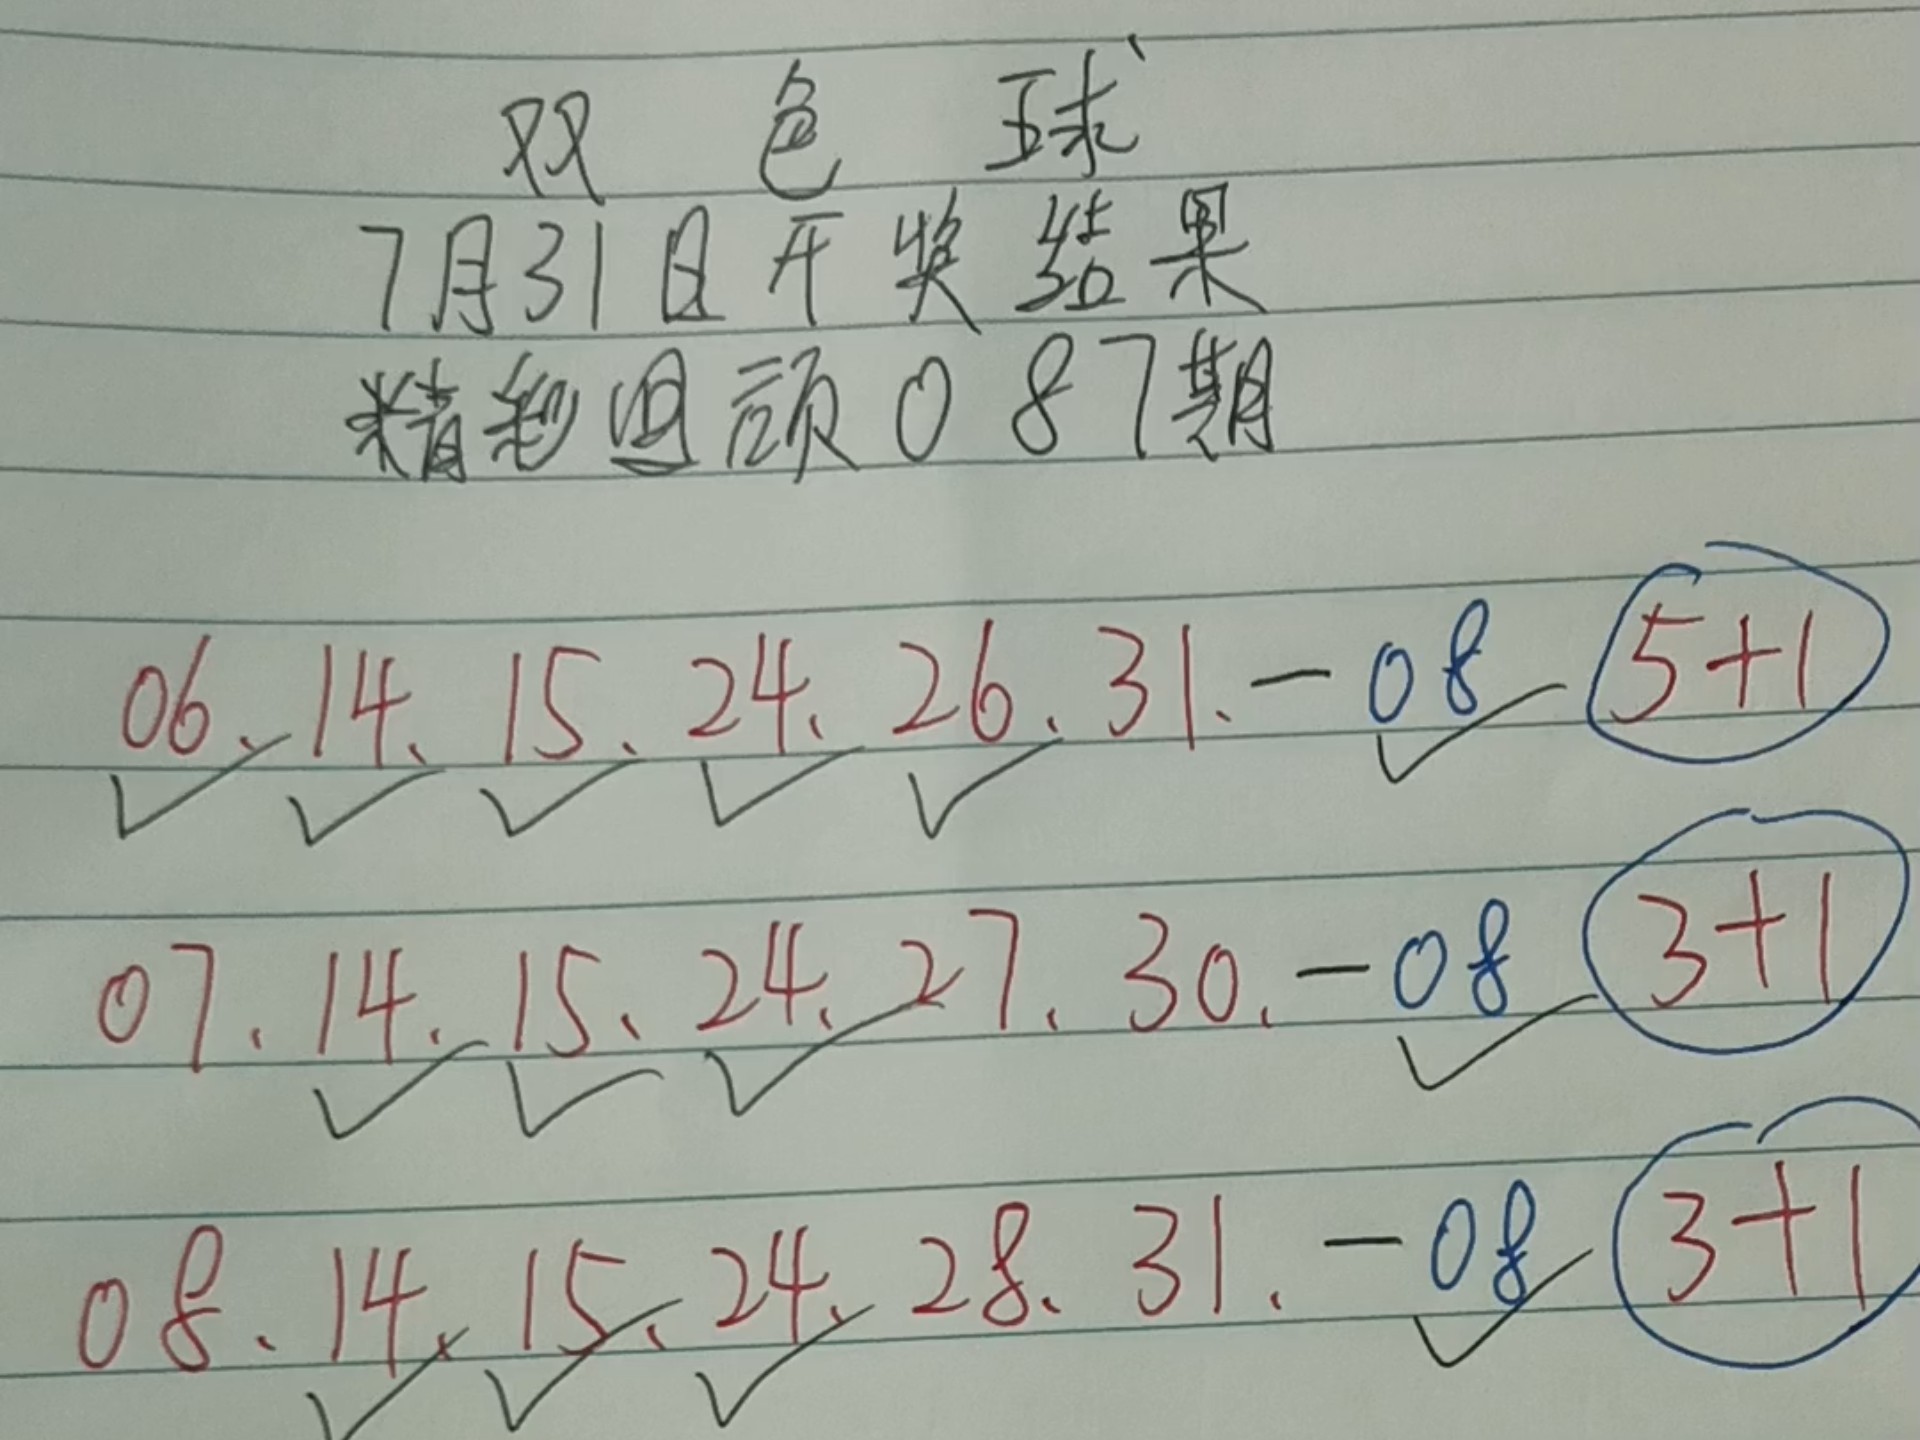 双色球
7月31日开奖结果
精彩回顾087期
06.14.15.24.26.31.-08 5+1
07.14.15.24.27.30.-08 3+1
08.14.15.24.28.31.-08 3+1